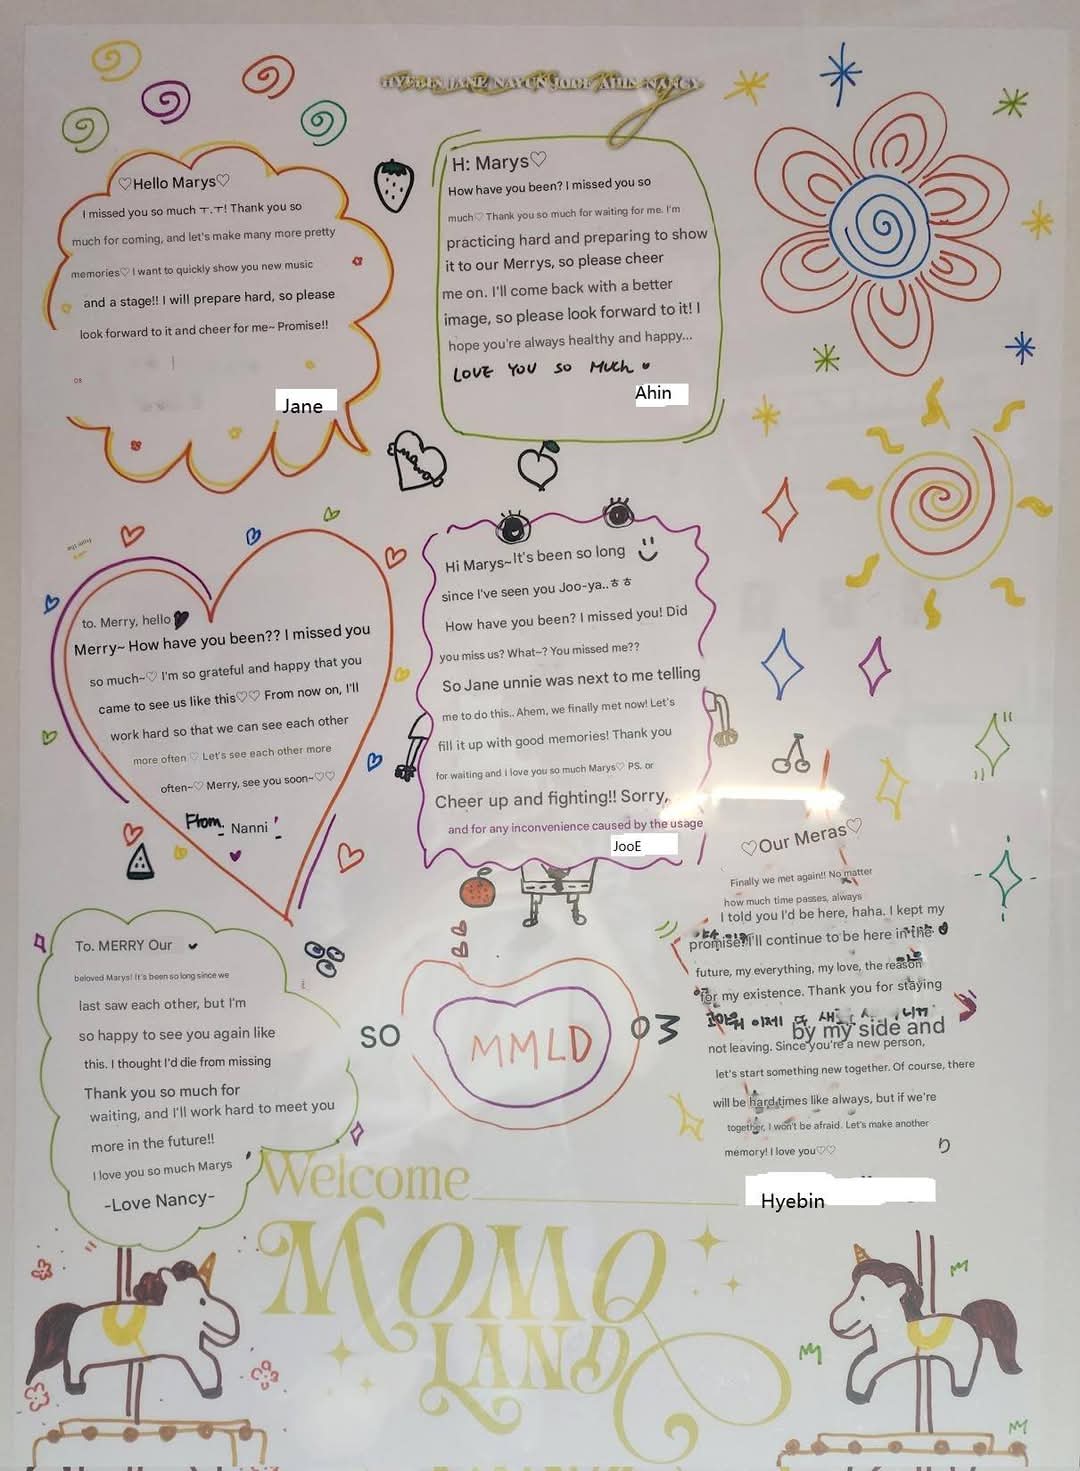 HYEBIN JANE NAYUN JOOE AHIN NANCY
♡Hello Marys♡
I missed you so much ㅜ.ㅜ! Thank you so
much for coming, and let's make many more pretty
memories♡ I want to quickly show you new music
and a stage!! I will prepare hard, so please
look forward to it and cheer for me~ Promise!!
Jane
H: Marys♡
How have you been? I missed you so
much♡ Thank you so much for waiting for me. I'm
practicing hard and preparing to show
it to our Merrys, so please cheer
me on. I'll come back with a better
image, so please look forward to it! I
hope you're always healthy and happy...
LOVE YOU SO MUCH
Ahin
to. Merry, hello
Merry~ How have you been?? I missed you
so much~♡ I'm so grateful and happy that you
came to see us like this♡♡ From now on, I'll
work hard so that we can see each other
more often ♡ Let's see each other more
often~♡ Merry, see you soon~♡♡
From. Nanni
Hi Marys~It's been so long
since I've seen you Joo-ya..ㅎㅎ
How have you been? I missed you! Did
you miss us? What~? You missed me??
So Jane unnie was next to me telling
me to do this.. Ahem, we finally met now! Let's
fill it up with good memories! Thank you
for waiting and I love you so much Marys♡ PS. or
Cheer up and fighting!! Sorry,
and for any inconvenience caused by the usage
JooE
To. MERRY Our
beloved Marys! It's been so long since we
last saw each other, but I'm
so happy to see you again like
this. I thought I'd die from missing
Thank you so much for
waiting, and I'll work hard to meet you
more in the future!!
I love you so much Marys
-Love Nancy-
SO MMLD 03
♡Our Meras♡
Finally we met again!! No matter
how much time passes, always
I told you I'd be here, haha. I kept my
promise!I'll continue to be here in the
future, my everything, my love, the reason
for my existence. Thank you for staying
이제
by my side and
not leaving. Since you're a new person,
let's start something new together. Of course, there
will be hard times like always, but if we're
together, I won't be afraid. Let's make another
memory! I love you♡♡
Hyebin
Welcome
MOMO
LAND